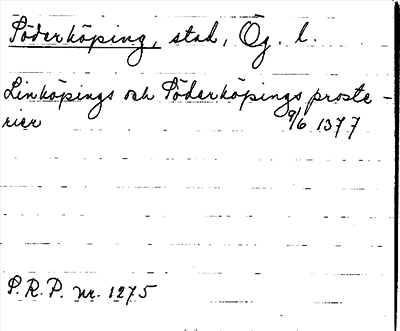 Söderköping, stad, Ög. l.
Linköpings och Söderköpings proste-
rier 9/6 1377
P.R.P. nr. 1275